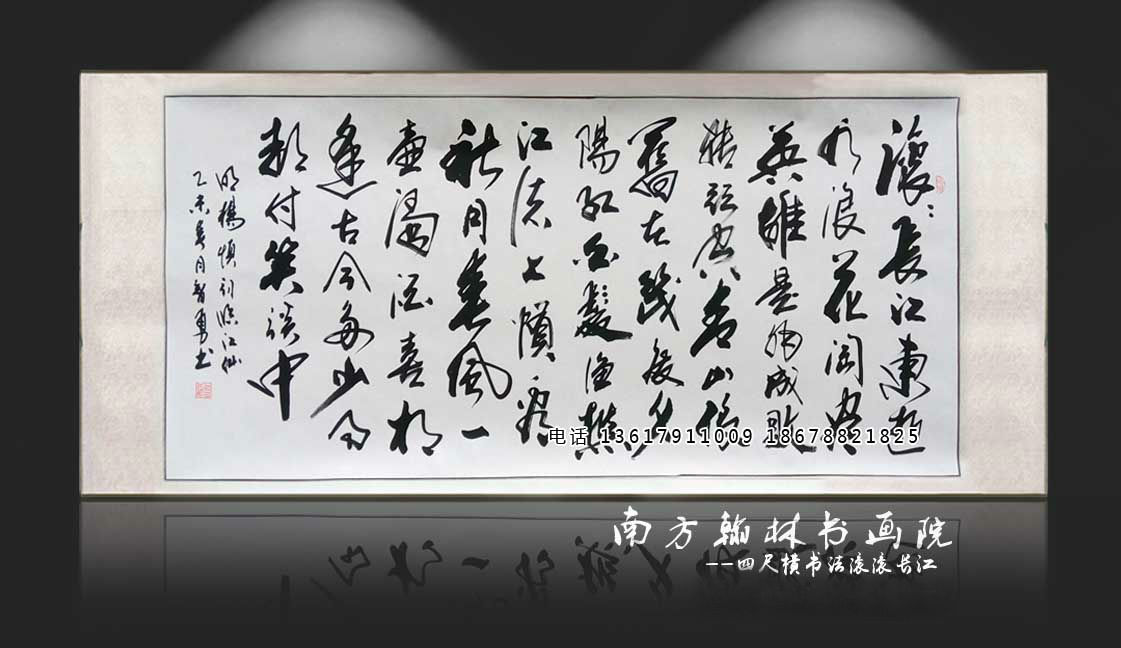 滾〻長江東逝
水浪花淘盡
英雄是非成敗
轉頭空青山依
舊在幾度夕
陽紅白髮漁樵
江渚上慣看
秋月春風一
壺濁酒喜相
逢古今多少事
都付笑談中
明楊慎词临江仙
乙未春月智勇书
电话 13617911009 18678821825
南方翰林书画院
--四尺横书法滚滚长江